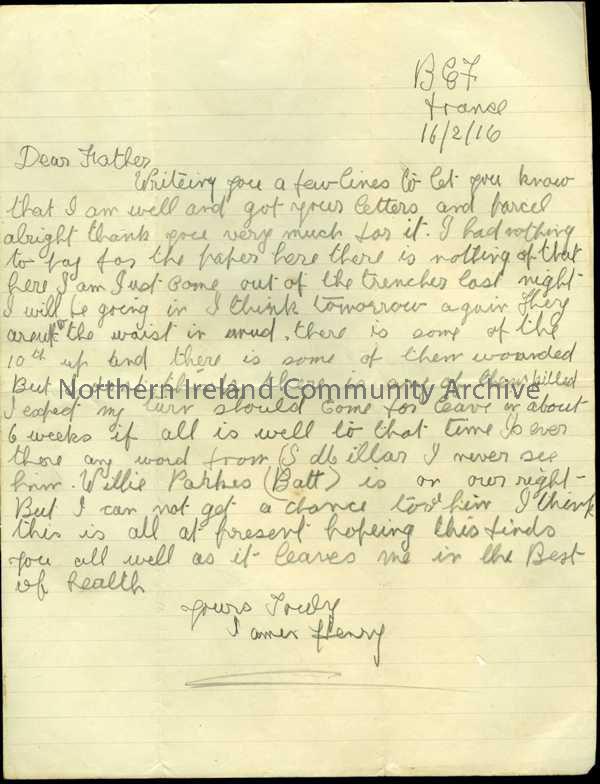 B E F
France
16/2/16
Dear Father
Writeing you a few lines to let you know
that I am well and got your letters and parcel
alright thank you very much for it. I had nothing
to pay for the paper here there is notting of that
here I am Just come out of the trenches last night
I will be going in I think tomorrow again They
are up to the waist in mud. there is some of the
10th up and there is some of them wounded
But I think there is any of them killed
Northern Ireland Community Archive
I expect my turn should come for leave in about
6 weeks if all is well to that time Is ever
there any word from S Millar I never see
him. Willie Parkes (Batt) is on our right
But I can not get a chance to him I think
this is all at present hopeing this finds
you all well as it leaves me in the Best
of health
yours Truly
James Henry